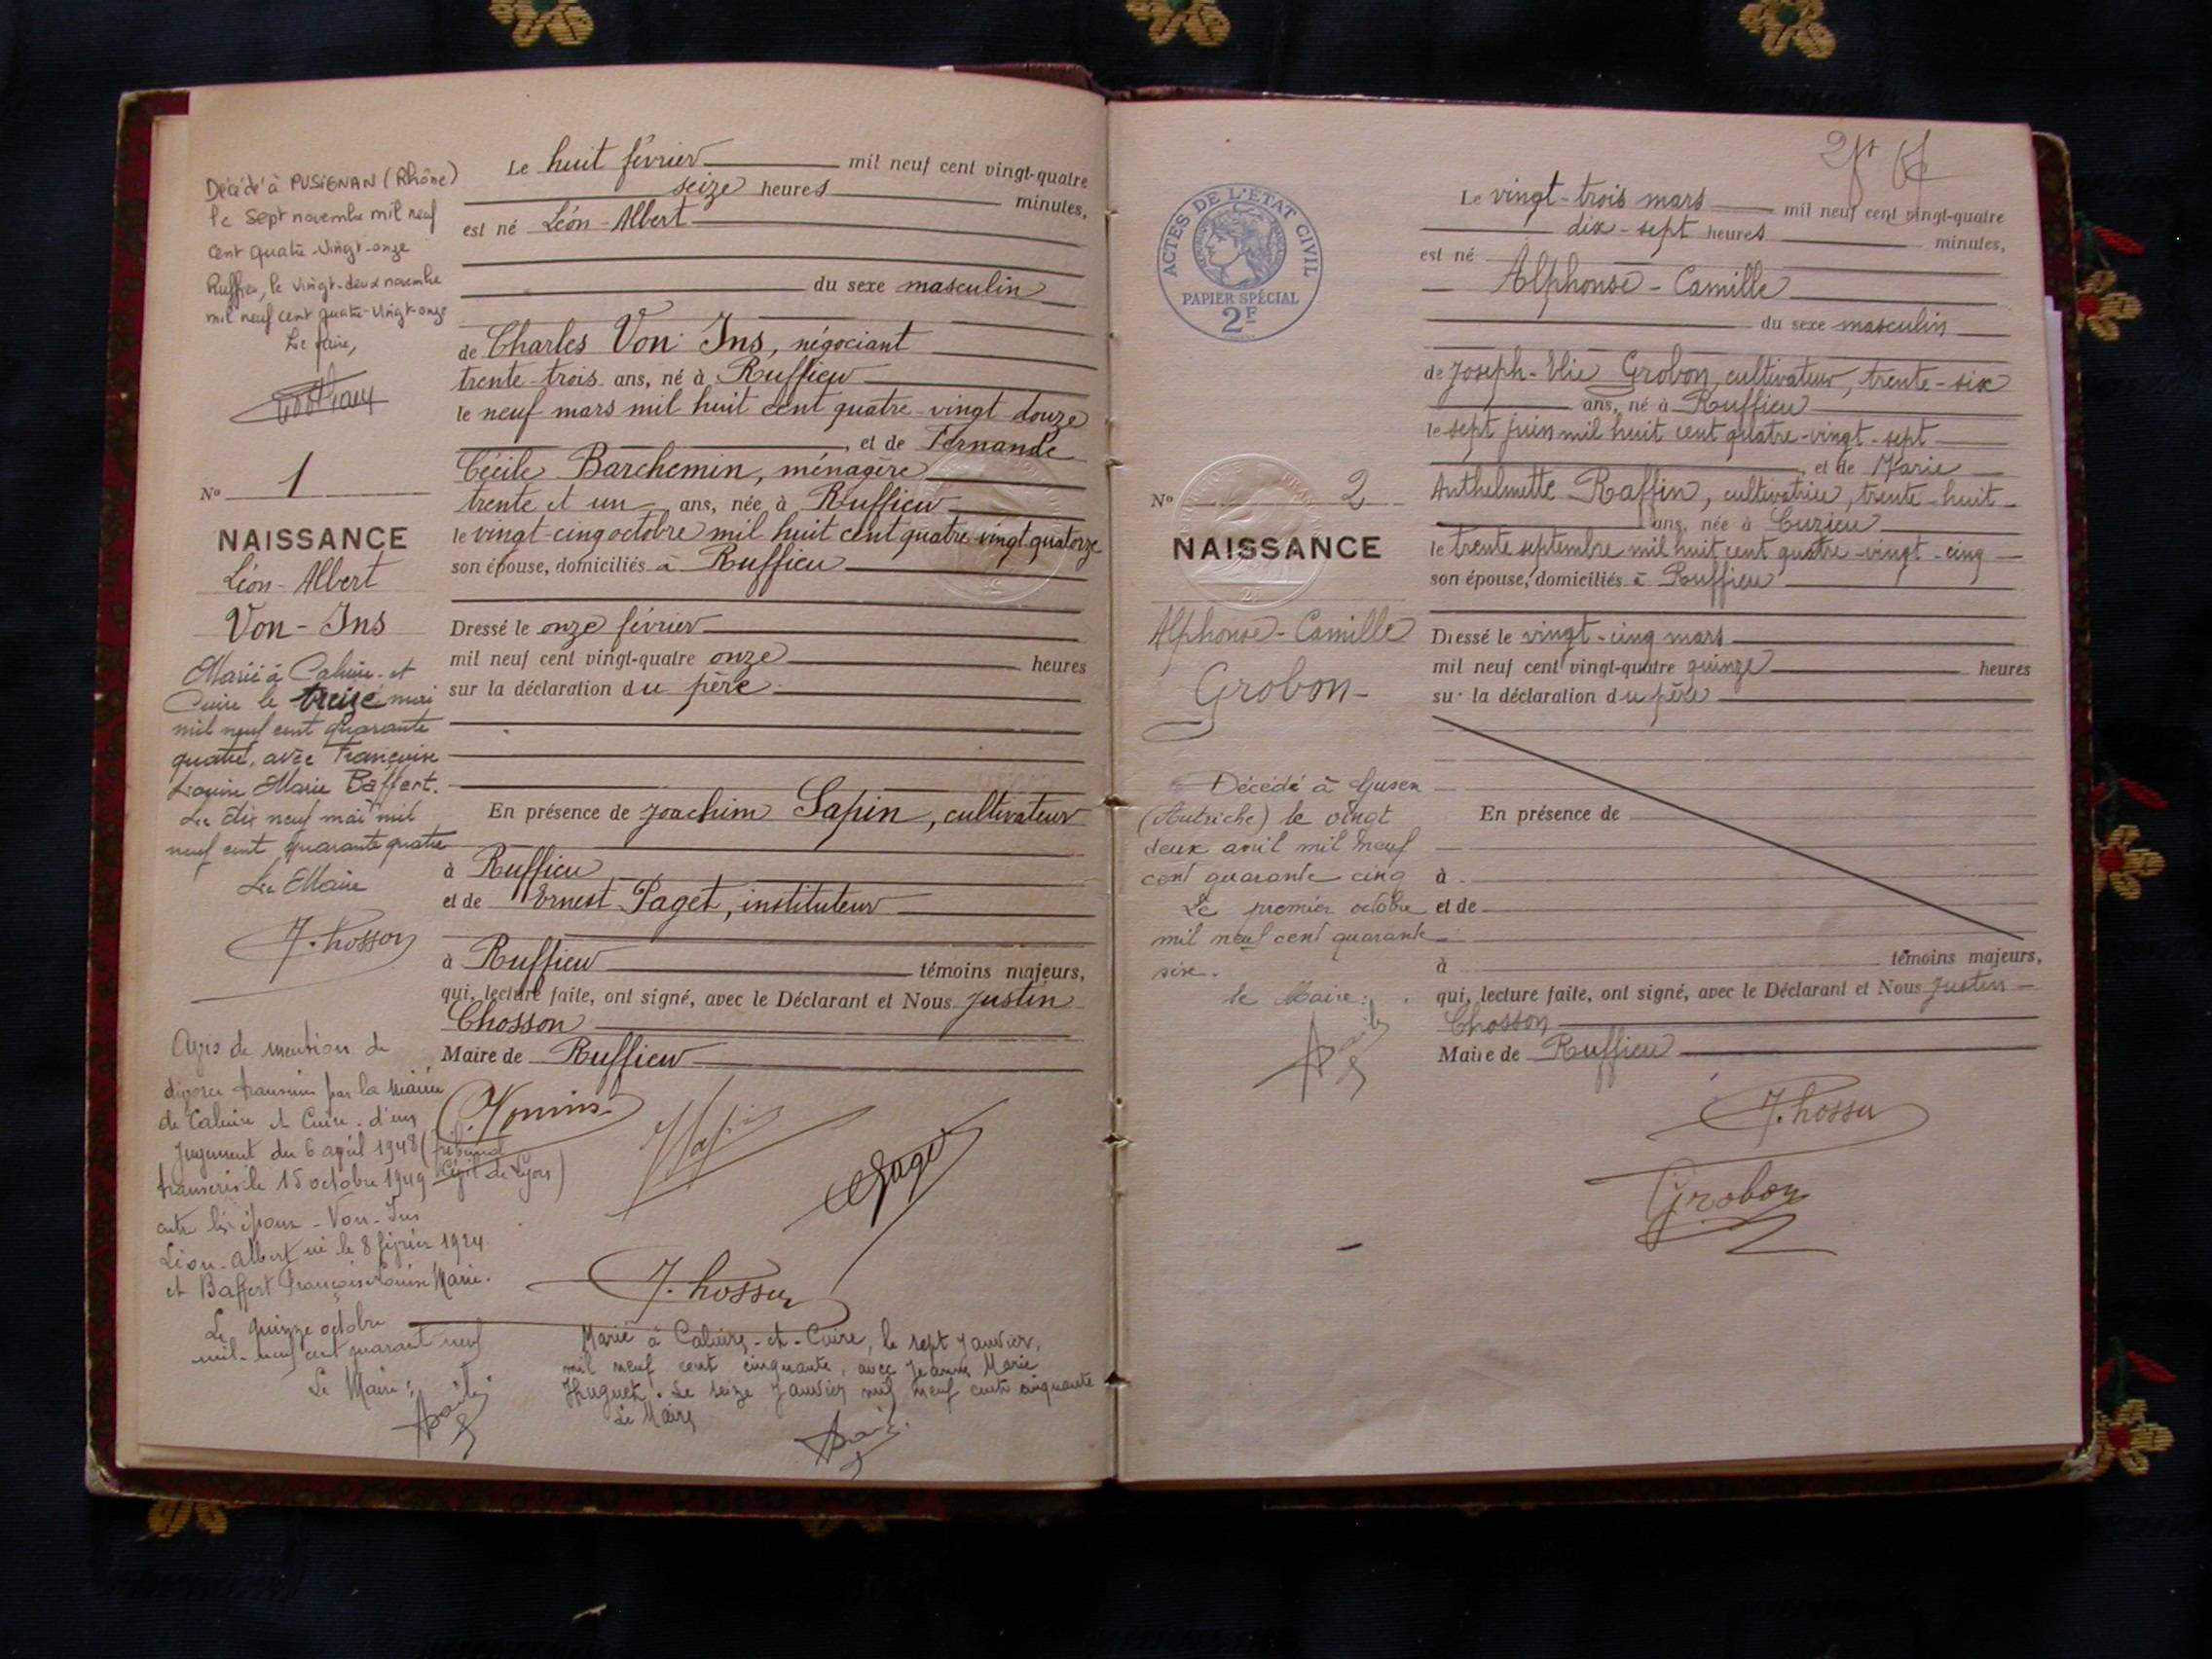 Décédé à PUSIGNAN (Rhône)
le sept novembre mil neuf
cent quatre-vingt-onze
Ruffieu, le vingt-deux novembre
mil neuf cent quatre-vingt-onze
Le Maire,
No 1
NAISSANCE
Léon-Albert
Von-Ins
Marié à Caluire-et
Cuire le treize mai
mil neuf cent quarante
quatre, avec Françoise
Louise Marie Baffert.
Le dix neuf mai mil
neuf cent quarante quatre
Le Maire
J. Chosson
Avis de mention de
divorce transmis par la Mairie
de Caluire et Cuire d'un
jugement du 6 april 1948 (Tribunal
Civil de Lyon)
transcris le 15 octobre 1949
entre les époux Von-Ins
Léon-Albert né le 8 février 1924
et Baffert Françoise Louise Marie.
Le quinze octobre
mil-neuf cent quarant neuf
Le Maire:
Le huit février mil neuf cent vingt-quatre
seize heures minutes,
est né Léon-Albert
du sexe masculin
de Charles Von Ins, négociant
trente-trois ans, né à Ruffieu
le neuf mars mil huit cent quatre-vingt douze
, et de Fernande
Cécile Barchemin, ménagère
trente et un ans, née à Ruffieu
le vingt-cinq octobre mil huit cent quatre vingt quatorze
son épouse, domiciliés à Ruffieu
Dressé le onze février
mil neuf cent vingt-quatre onze heures
sur la déclaration du père
En présence de Joachim Sapin, cultivateur
à Ruffieu
et de Ernest Paget, instituteur
à Ruffieu témoins majeurs,
qui, lecture faite, ont signé, avec le Déclarant et Nous Justin
Chosson
Maire de Ruffieu
J. Chosson
Marié à Caluire-et-Cuire, le sept janvier,
mil neuf cent cinquante, avec Jeanne Marie
Huguet. Le seize janvier mil neuf cent cinquante
Le Maire
ACTES DE L'ÉTAT CIVIL
PAPIER SPÉCIAL
2F
No 2
NAISSANCE
Alphonse-Camille
Grobon-
Décédé à Gusen
(Autriche) le vingt
deux avril mil neuf
cent quarante cinq
Le premier octobre
mil neuf cent quarante
six.
le Maire:
Le vingt-trois mars mil neuf cent vingt-quatre
dix-sept heures minutes,
est né
Alphonse-Camille
du sexe masculin
de Joseph-Elie Grobon, cultivateur, trente-six
ans, né à Ruffieu
le sept juin mil huit cent quatre-vingt-sept
, et de Marie
Anthelmette Raffin, cultivatrice, trente-huit
ans, née à Cuzieu
le trente septembre mil huit cent quatre-vingt-cinq
son épouse, domiciliés à Ruffieu
Dressé le vingt-cinq mars
mil neuf cent vingt-quatre quinze heures
sur la déclaration du père
En présence de
à
et de
à témoins majeurs,
qui, lecture faite, ont signé, avec le Déclarant et Nous Justin
Chosson
Maire de Ruffieu
J. Chosson
Grobon